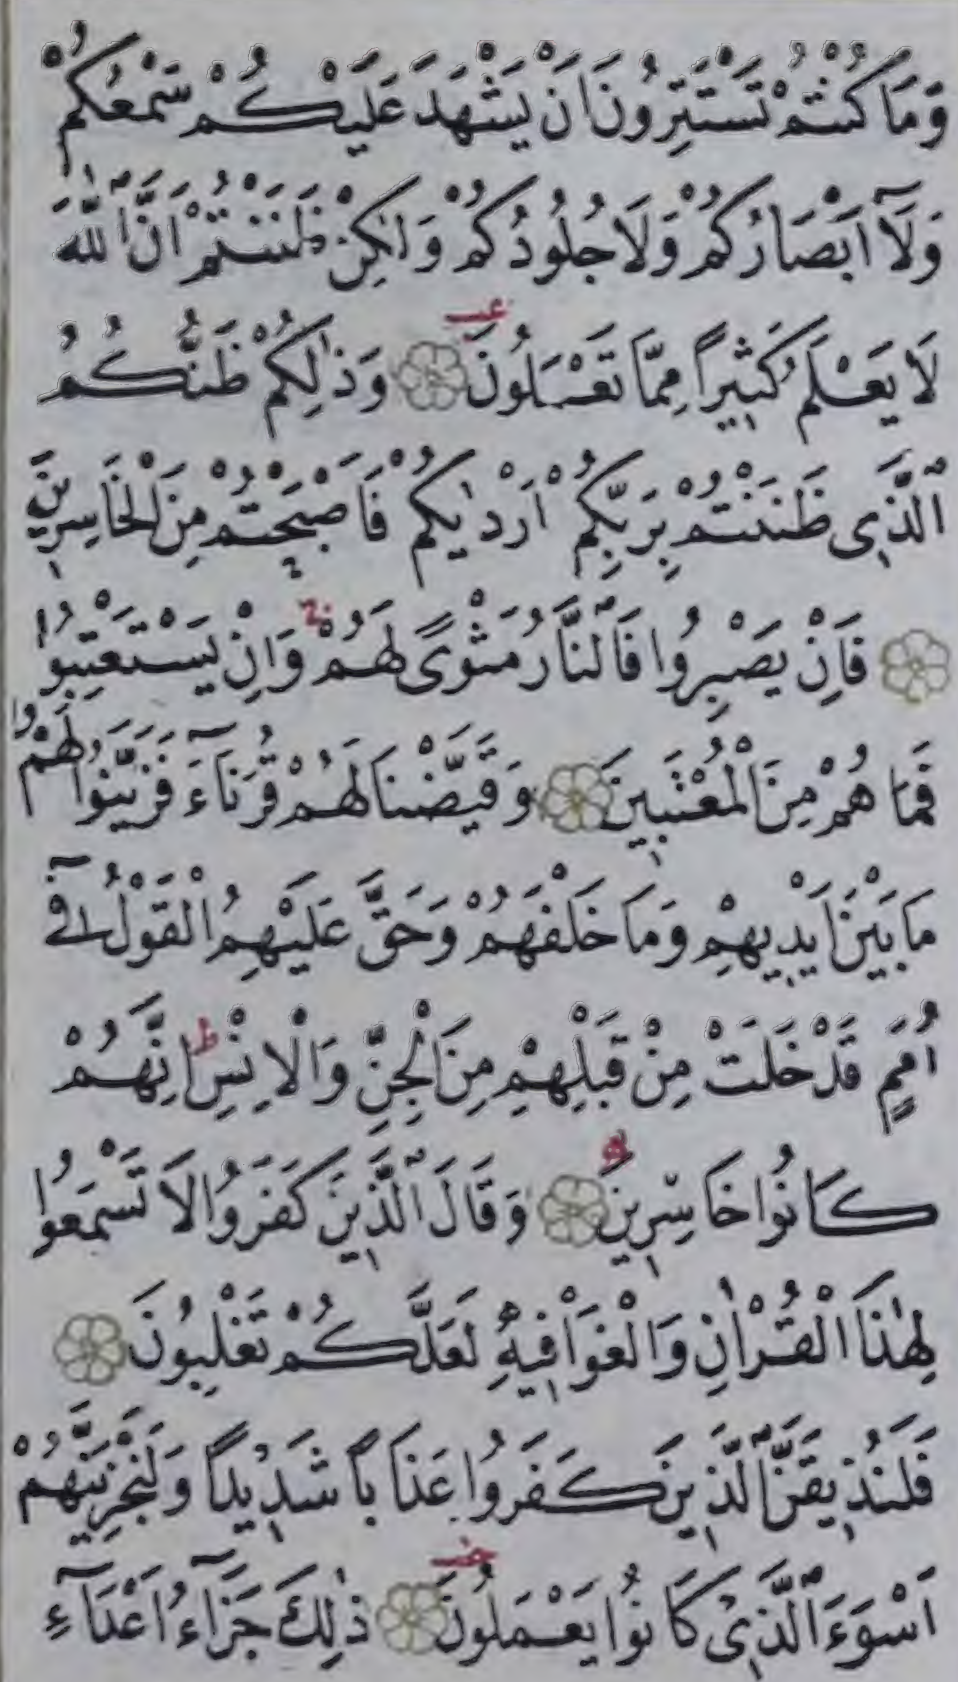 وَمَا كُنْتُمْ تَسْتَتِرُونَ اَنْ يَشْهَدَ عَلَيْكُمْ سَمْعُكُمْ
وَلَٓا اَبْصَارُكُمْ وَلَا جُلُودُكُمْ وَلٰكِنْ ظَنَنْتُمْ اَنَّ اللّٰهَ
لَا يَعْلَمُ كَثٖيرًا مِمَّا تَعْمَلُونَ ۝ وَذٰلِكُمْ ظَنُّكُمُ
الَّذٖى ظَنَنْتُمْ بِرَبِّكُمْ اَرْدٰيكُمْ فَاَصْبَحْتُمْ مِنَ الْخَاسِرٖينَ
۝ فَاِنْ يَصْبِرُوا فَالنَّارُ مَثْوًى لَهُمْ وَاِنْ يَسْتَعْتِبُوا
فَمَا هُمْ مِنَ الْمُعْتَبٖينَ ۝ وَقَيَّضْنَا لَهُمْ قُرَنَٓاءَ فَزَيَّنُوا لَهُمْ
مَا بَيْنَ اَيْدٖيهِمْ وَمَا خَلْفَهُمْ وَحَقَّ عَلَيْهِمُ الْقَوْلُ فٖٓى
اُمَمٍ قَدْ خَلَتْ مِنْ قَبْلِهِمْ مِنَ الْجِنِّ وَالْاِنْسِ ط اِنَّهُمْ
كَانُوا خَاسِرٖينَ ۝ وَقَالَ الَّذٖينَ كَفَرُوا لَا تَسْمَعُوا
لِهٰذَا الْقُرْاٰنِ وَالْغَوْا فٖيهِ لَعَلَّكُمْ تَغْلِبُونَ ۝
فَلَنُذٖيقَنَّ الَّذٖينَ كَفَرُوا عَذَابًا شَدٖيدًا وَلَنَجْزِيَنَّهُمْ
اَسْوَءَ الَّذٖى كَانُوا يَعْمَلُونَ ۝ ذٰلِكَ جَزَٓاءُ اَعْدَٓاءِ